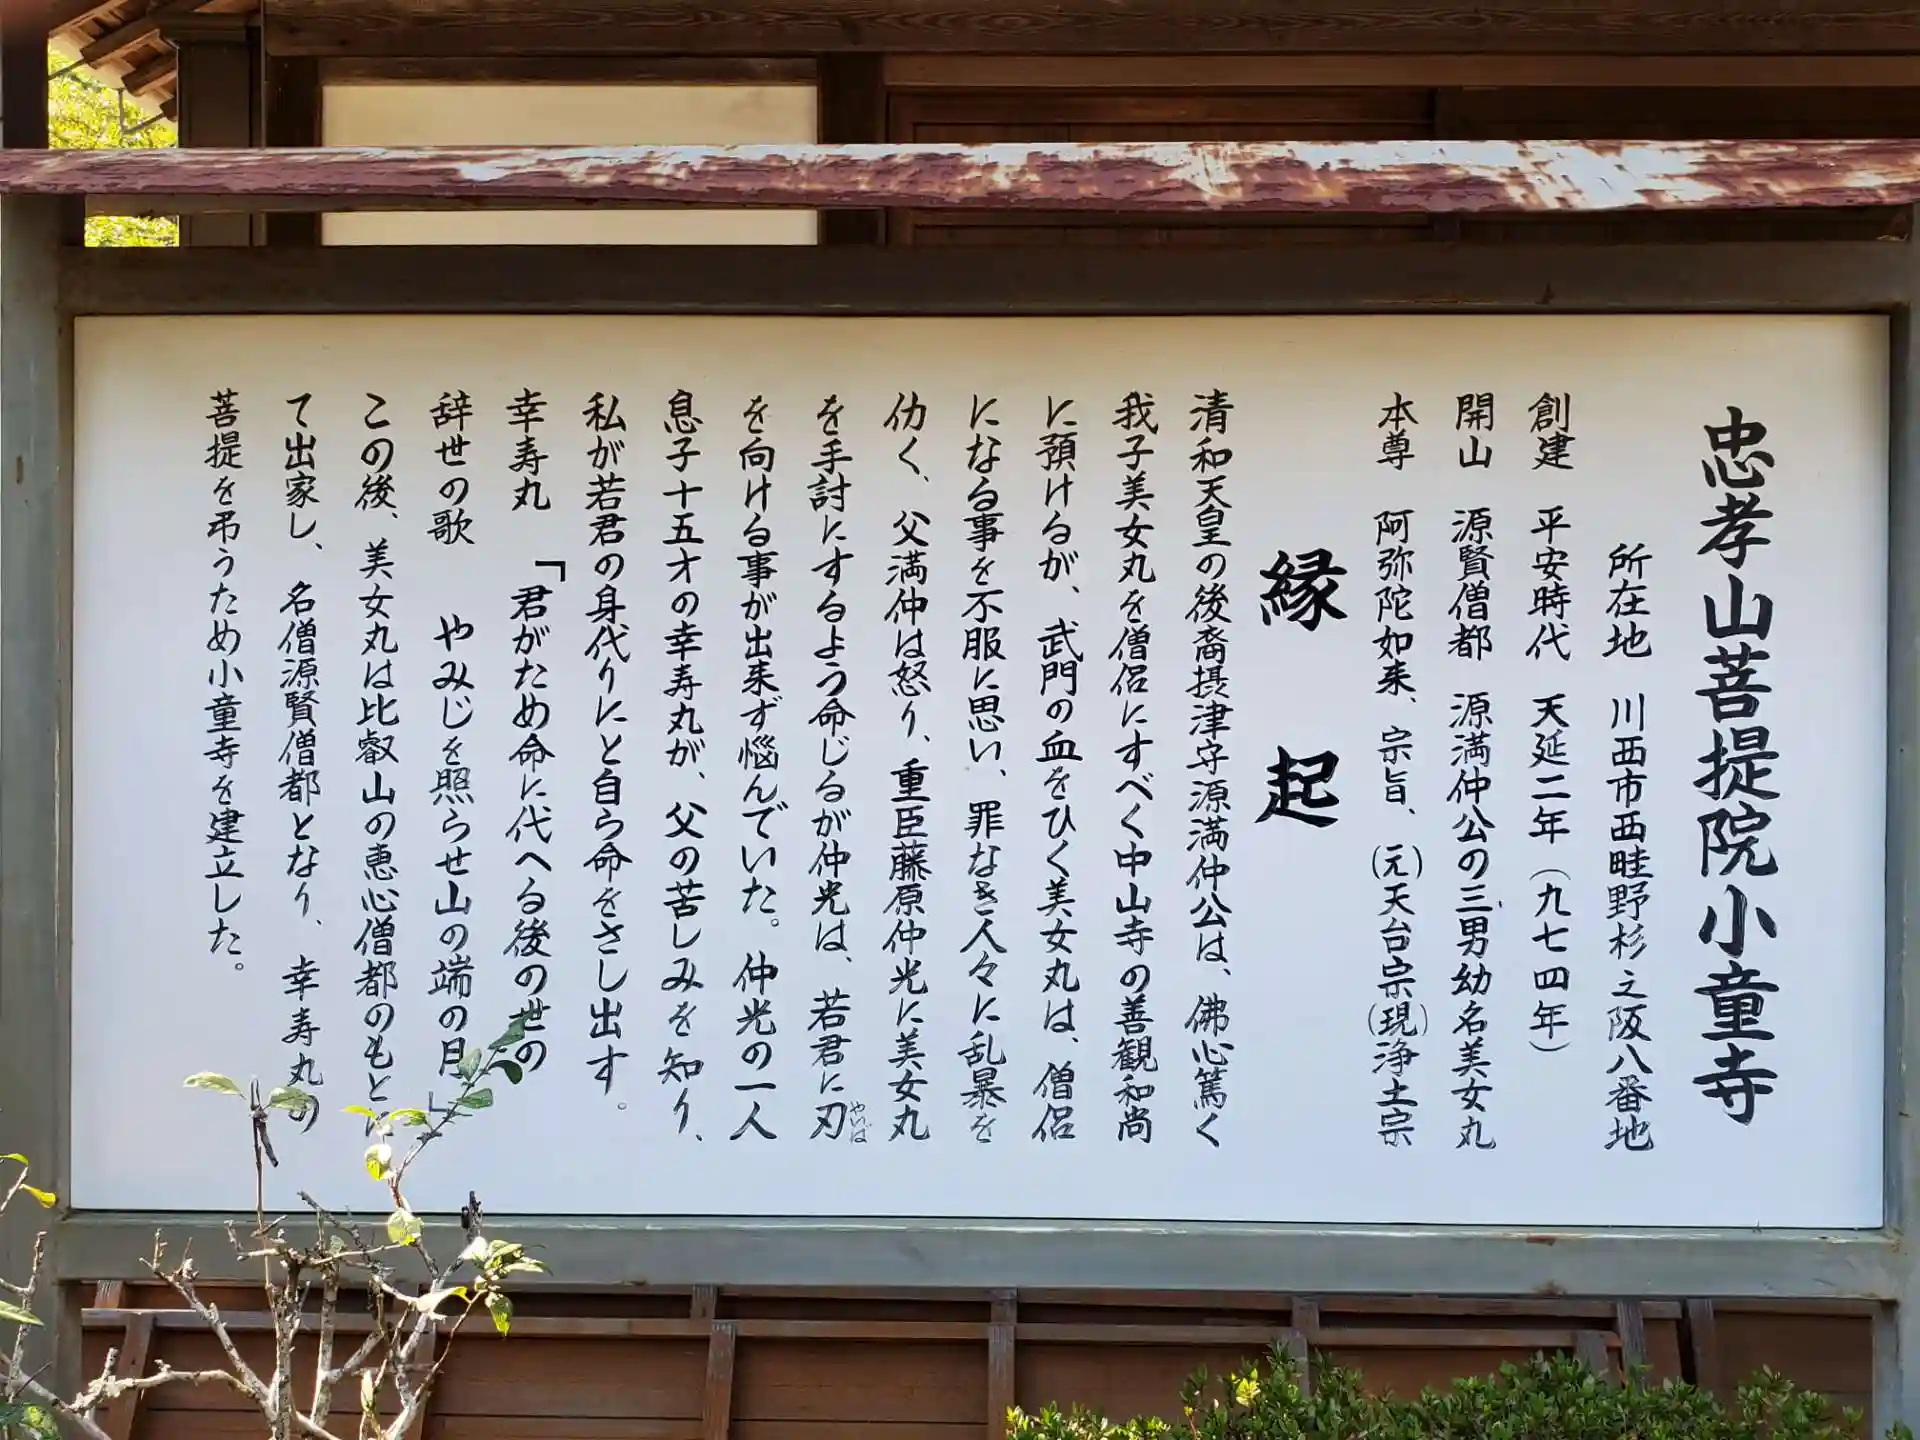 忠孝山菩提院小童寺
所在地 川西市西畦野杉之阪八番地
創建 平安時代 天延二年(九七四年)
開山 源賢僧都 源満仲公の三男幼名美女丸
本尊 阿弥陀如来、宗旨、(元)天台宗(現)浄土宗
縁起
清和天皇の後裔摂津守源満仲公は、佛心篤く
我子美女丸を僧侶にすべく中山寺の善観和尚
に預けるが、武門の血をひく美女丸は、僧侶
になる事を不服に思い、罪なき人々に乱暴を
仂く、父満仲は怒り、重臣藤原仲光に美女丸
を手討にするよう命じるが仲光は、若君に刃
やいば
を向ける事が出来ず悩んでいた。仲光の一人
息子十五才の幸寿丸が、父の苦しみを知り、
私が若君の身代りにと自ら命をさし出す。
幸寿丸 「君がため命に代へる後の世の
辞世の歌 やみじを照らせ山の端の月」
この後、美女丸は比叡山の恵心僧都のもとに
て出家し、名僧源賢僧都となり、幸寿丸の
菩提を弔うため小童寺を建立した。